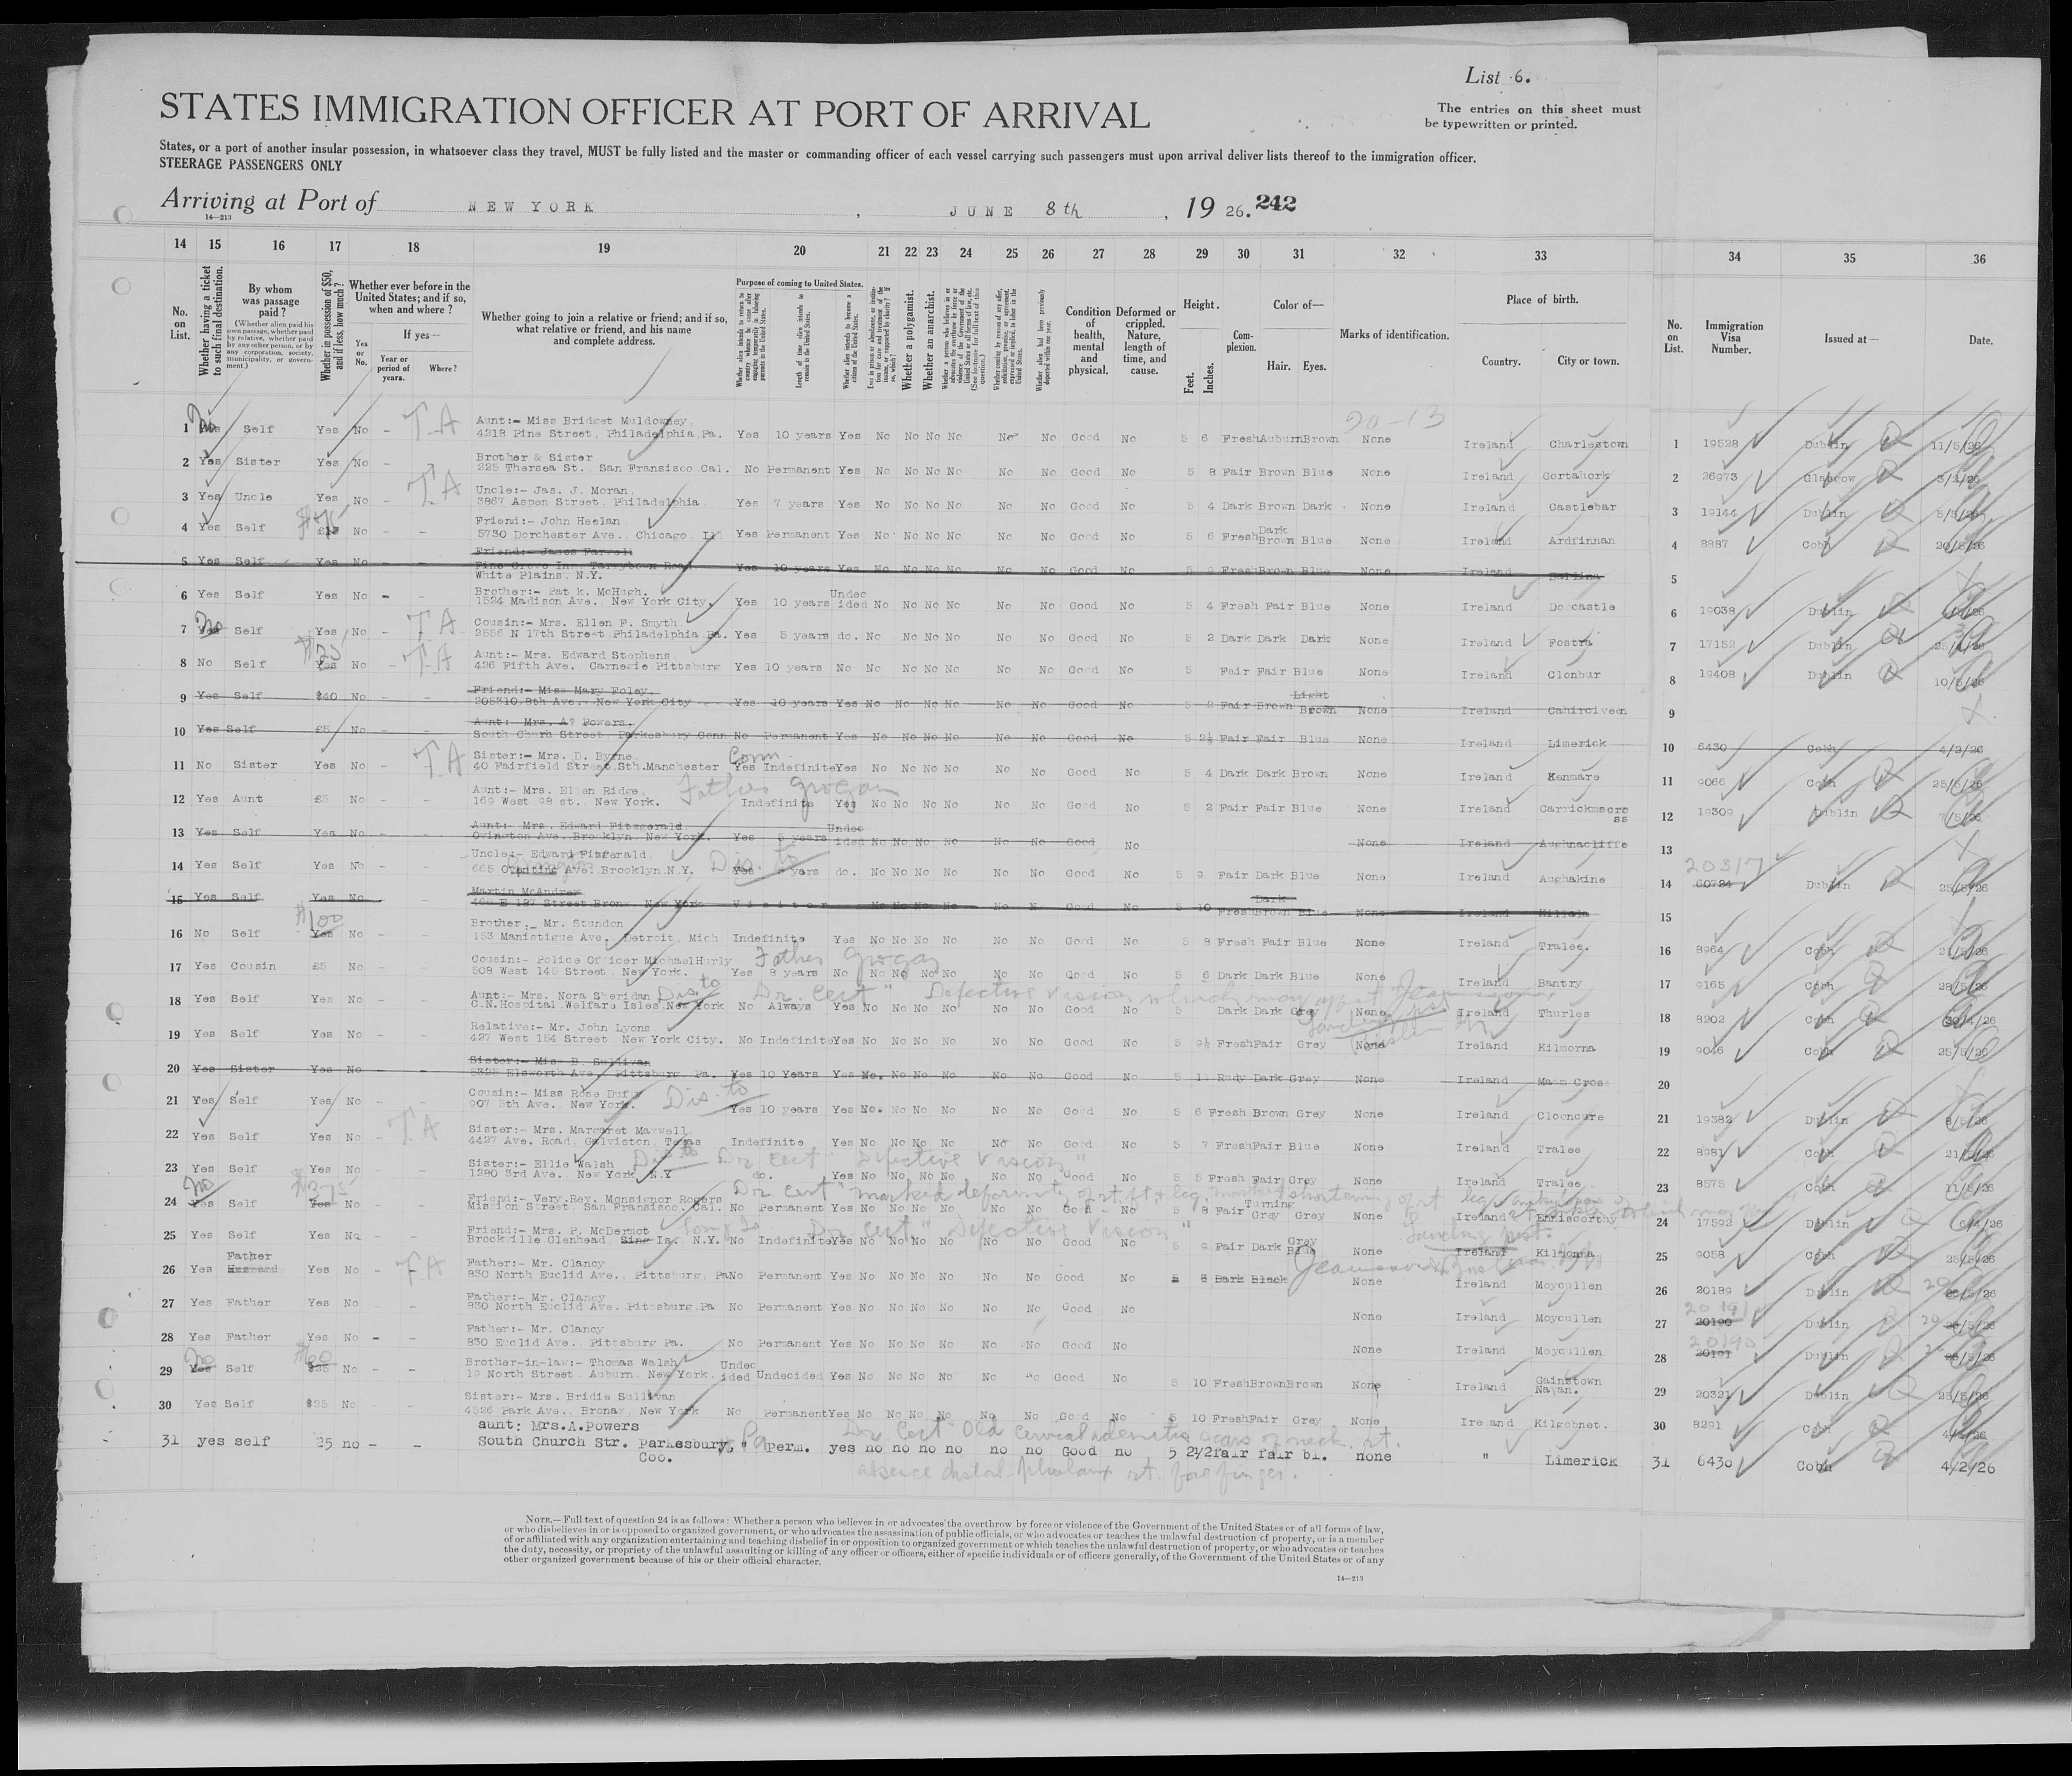 List 6.
STATES IMMIGRATION OFFICER AT PORT OF ARRIVAL
The entries on this sheet must
be typewritten or printed.
States, or a port of another insular possession, in whatsoever class they travel, MUST be fully listed and the master or commanding officer of each vessel carrying such passengers must upon arrival deliver lists thereof to the immigration officer.
STEERAGE PASSENGERS ONLY
Arriving at Port of NEW YORK, JUNE 8th, 19 26. 242
14—213
14 15 16 17 18 19 20 21 22 23 24 25 26 27 28 29 30 31 32 33 34 35 36
No. on List.
Whether having a ticket to such final destination.
By whom was passage paid?
(Whether alien paid his own passage, whether paid by relative, whether paid by any other person, or by any corporation, society, municipality, or government.)
Whether in possession of $50, and if less, how much?
Whether ever before in the United States; and if so, when and where?
If yes—
Yes or No.
Year or period of years.
Where?
Whether going to join a relative or friend; and if so, what relative or friend, and his name and complete address.
Purpose of coming to United States.
Length of time alien intends to remain in the United States.
Whether alien intends to become a citizen of the United States.
Whether a polygamist.
Whether an anarchist.
Condition of health, mental and physical.
Deformed or crippled. Nature, length of time, and cause.
Height.
Feet. Inches.
Complexion.
Color of—
Hair. Eyes.
Marks of identification.
Place of birth.
Country. City or town.
No. on List.
Immigration Visa Number.
Issued at—
Date.
20-13
1 No Yes Self Yes No - T.A Aunt:- Miss Bridget Muldowney,
4218 Pine Street, Philadelphia Pa. Yes 10 years Yes No No No No No No Good No 5 6 Fresh Auburn Brown None Ireland Charlestown 1 19528 Dublin 11/5/26
2 Yes Sister Yes No - Brother & Sister
225 Thersea St., San Fransisco Cal. No Permanent Yes No No No No No No Good No 5 8 Fair Brown Blue None Ireland Gortahork 2 26973 Glasgow
3 Yes Uncle Yes No - T.A Uncle:- Jas. J. Moran,
3867 Aspen Street, Philadelphia Yes 7 years Yes No No No No No No Good No 5 4 Dark Brown Dark None Ireland Castlebar 3 19144 Dublin
4 Yes Self No - - Friend:- John Heelan
5730 Dorchester Ave., Chicago Ill Yes Permanent Yes No No No No No No Good No 5 6 Fresh Dark Brown Blue None Ireland Ardfinnan 4 8887 Cobh 20/5/26
5 Yes Self Yes No - - Friend:- James Farrell
Pine Grove Inn, Tarrytown Road
White Plains, N.Y. Yes 10 years Yes No No No No No No Good No Fresh Brown Blue None Ireland 5
6 Yes Self Yes No - - Brother:- Pat k. McHugh,
1524 Madison Ave., New York City, Yes 10 years Undecided No No No No No No Good No 5 4 Fresh Fair Blue None Ireland Doocastle 6 19038 Dublin
7 No Yes Self Yes No - T.A Cousin:- Mrs. Ellen F. Smyth,
2556 N 17th Street Philadelphia Pa. Yes 5 years do. No No No No No No Good No 5 2 Dark Dark Dark None Ireland Fostra 7 17152 Dublin
8 No Self $25 Yes No - T.A Aunt:- Mrs. Edward Stephens
426 Fifth Ave., Carnegie Pittsburg Yes 10 years No No No No No No No Good No 5 Fair Fair Blue None Ireland Clonbur 8 19408 Dublin 10/5/26
9 Yes Self $40 No - - Friend:- Miss Mary Foley.
8th Ave. New York City Yes 10 years Yes No No No No No No Good No 5 2 Fair Brown Light Brown None Ireland Cahirciveen 9
10 Yes Self £5 No - - Aunt:- Mrs. A? Powers.
South Churh Street Parkesbury Conn No Permanent Yes No No No No No No Good No 5 2½ Fair Fair Blue None Ireland Limerick 10 6430 Cobh 4/2/26
11 No Sister Yes No - T.A Sister:- Mrs. D. Byrne,
40 Fairfield Street Sth.Manchester Conn Yes Indefinite Yes No No No No No No Good No 5 4 Dark Dark Brown None Ireland Kenmare 11 9066 Cobh 25/5/26
12 Yes Aunt £5 No - - Aunt:- Mrs. Ellen Ridge,
169 West 98 st., New York. Father Grogan Indefinite Yes No No No No No No Good No 5 2 Fair Fair Blue None Ireland Carrickmacross 12 19309 Dublin 7/5/26
13 Yes Self Yes No - - Aunt:- Mrs. Edward Fitzgerald
Ovington Ave. Brooklyn New York. Yes 5 years Undecided No No No No No No Good No None Ireland Aughnacliffe 13
14 Yes Self Yes No - - Uncle:- Edward Fitzferald,
665 Ave. Brooklyn N.Y. Dis. to Yes years do. No No No No No No Good No 5 9 Fair Dark Blue None Ireland Aughakine 14 20317 Dublin 25/5/26
15 Yes Self Yes No - - Martin McAndrew
E 197 Street Bronx, New York Visitor No No No No No Good No 5 10 Fresh Dark Brown Blue None Ireland Killala 15
16 No Self $100 Yes No - - Brother,- Mr. Stundon
153 Manistigue Ave. Detroit, Mich Indefinite Yes No No No No No No Good No 5 8 Fresh Fair Blue None Ireland Tralee. 16 8964 Cobh 21/5/26
17 Yes Cousin £5 No - - Cousin:- Police Officer Michael Hurly
508 West 145 Street, New York. Father Grogan Yes 8 years No No No No No No No Good No 5 6 Dark Dark Blue None Ireland Bantry 17 9165 Cobh 28/5/26
18 Yes Self Yes No - - Aunt:- Mrs. Nora Sheridan
C.N.Hospital Welfare Isles New York Dis. to No Always Yes No No No No No No Good No 5 Dark Dark Grey None Ireland Thurles 18 8202 Cobh
Dr. cert "Defective vision which may affect
19 Yes Self Yes No - - Relative:- Mr. John Lyons,
427 West 154 Street, New York City. No Indefinite Yes No No No No No No Good No 5 9½ Fresh Fair Grey None Ireland Kilmorna 19 9046 Cobh 25/5/26
20 Yes Sister Yes No - - Sister:- Miss B. Sullivan
Elsworth Ave. Pittsburg Pa. Yes 10 Years Yes No. No No No No No Good No 5 Rudy Dark Grey None Ireland Maam Cross 20
21 Yes Self Yes No - - Cousin:- Miss Rose Duffy
907 5th Ave., New York. Dis. to Yes 10 years Yes No. No No No No No Good No 5 6 Fresh Brown Grey None Ireland Clooncure 21 19382 Dublin
22 Yes Self Yes No - T.A Sister:- Mrs. Margaret Maxwell,
4427 Ave. Road, Galviston, Texas Indefinite Yes No No No No No No Good No 5 7 Fresh Fair Blue None Ireland Tralee 22 8981 Cobh
23 Yes Self Yes No - - Sister:- Ellie Walsh
1280 3rd Ave., New York N.Y Dis to do. Yes No No No No No No Good No 5 5 Fresh Fair Grey None Ireland Tralee 23 8575 Cobh 11/5/26
Dr cert "Defective Vision"
24 No Yes Self Yes No - - Friend:- Very Rev. Monsignor Rogers
Mission Street, San Fransisco, Cal. No Permanent Yes No No No No No No Good No 5 8 Fair Turning Grey Grey None Ireland Enniscorthy 24 17592 Dublin
Dr cert "marked deformity of rt. ft & leg,
25 Yes Self Yes No - - Friend:- Mrs. P. McDermot
Brookville Glenhead, Sing Is. N.Y. Long Is No Indefinite Yes No No No No No No Good No 5 9 Fair Dark Grey Blue None Ireland Kilmorna 25 9058 Cobh 25/5/26
Dr cert "Defective Vision"
26 Yes Father Husband Yes No - T.A Father:- Mr. Clancy
830 North Euclid Ave., Pittsburg, Pa No Permanent Yes No No No No No No Good No 5 3 Dark Black None Ireland Moycullen 26 20189 Dublin
27 Yes Father Yes No - - Father:- Mr. Clancy
830 North Euclid Ave. Pittsburg Pa No Permanent Yes No No No No No No Good No None Ireland Moycullen 27 20191 20190 Dublin
28 Yes Father Yes No - - Father:- Mr. Clancy
830 Euclid Ave., Pittsburg Pa. No Permanent Yes No No No No No No Good No None Ireland Moycullen 28 20190 20191 Dublin
29 No Yes Self $60 $25 No - - Brother-in-law:- Thomas Walsh
19 North Street, Auburn, New York. Undecided Undecided Yes No No No No No No Good No 5 10 Fresh Brown Brown None Ireland Gainstown Navan. 29 20321 Dublin 25/5/26
30 Yes Self $25 No - - Sister:- Mrs. Bridie Sullivan
4526 Park Ave., Bronax, New York No Permanent Yes No No No No No No Good No 5 10 Fresh Fair Grey None Ireland Kilgobnet. 30 8291 Cobh
31 yes self 25 no - - aunt: Mrs.A.Powers
South Church Str. Parkesbury, Pa " perm. yes no no no no no no Good no 5 2½ fair fair bl. none " Limerick 31 6430 Cobh 4/2/26
Coo.
Dr. Cert "Old cervical adenitis scars of neck, rt.
absence distal phalanx rt. forefinger.
NOTE.—Full text of question 24 is as follows: Whether a person who believes in or advocates the overthrow by force or violence of the Government of the United States or of all forms of law,
or who disbelieves in or is opposed to organized government, or who advocates the assassination of public officials, or who advocates or teaches the unlawful destruction of property, or is a member
of or affiliated with any organization entertaining and teaching disbelief in or opposition to organized government or which teaches the unlawful destruction of property, or who advocates or teaches
the duty, necessity, or propriety of the unlawful assaulting or killing of any officer or officers, either of specific individuals or of officers generally, of the Government of the United States or of any
other organized government because of his or their official character.
14—213